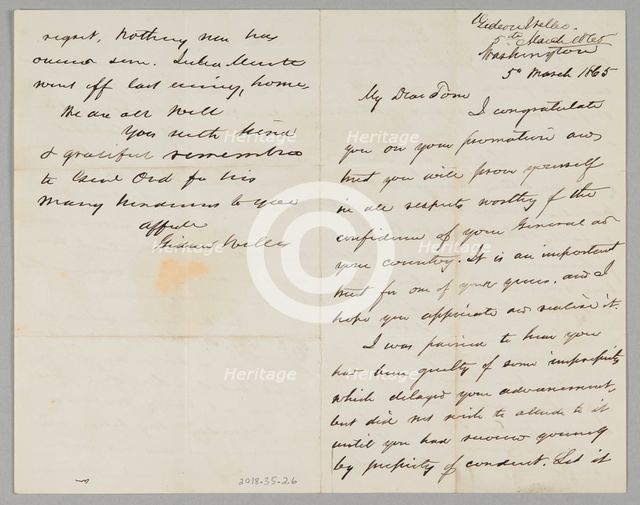 Gideon Welles.
5th March 1865
Washington
5th March 1865
My Dear Tom
I congratulate
you on your promotion and
trust you will prove yourself
in all respects worthy of the
confidence of your General and
your country. It is an important
trust for one of your years, and I
hope you appreciate and realize it.
I was pained to hear you
had been guilty of some impropriety
which delayed your advancement,
but did not wish to allude to it
until you had
by propriety of conduct. Let it
regret. Nothing new has
since.
went off last evening, home
We are all well
You with kind
& grateful remembra
to Genl Ord for his
many kindnesses to you
affte
Gideon Welles
2018.35.26
Heritage
Heritage
Heritage
Heritage
Heritage
Heritage